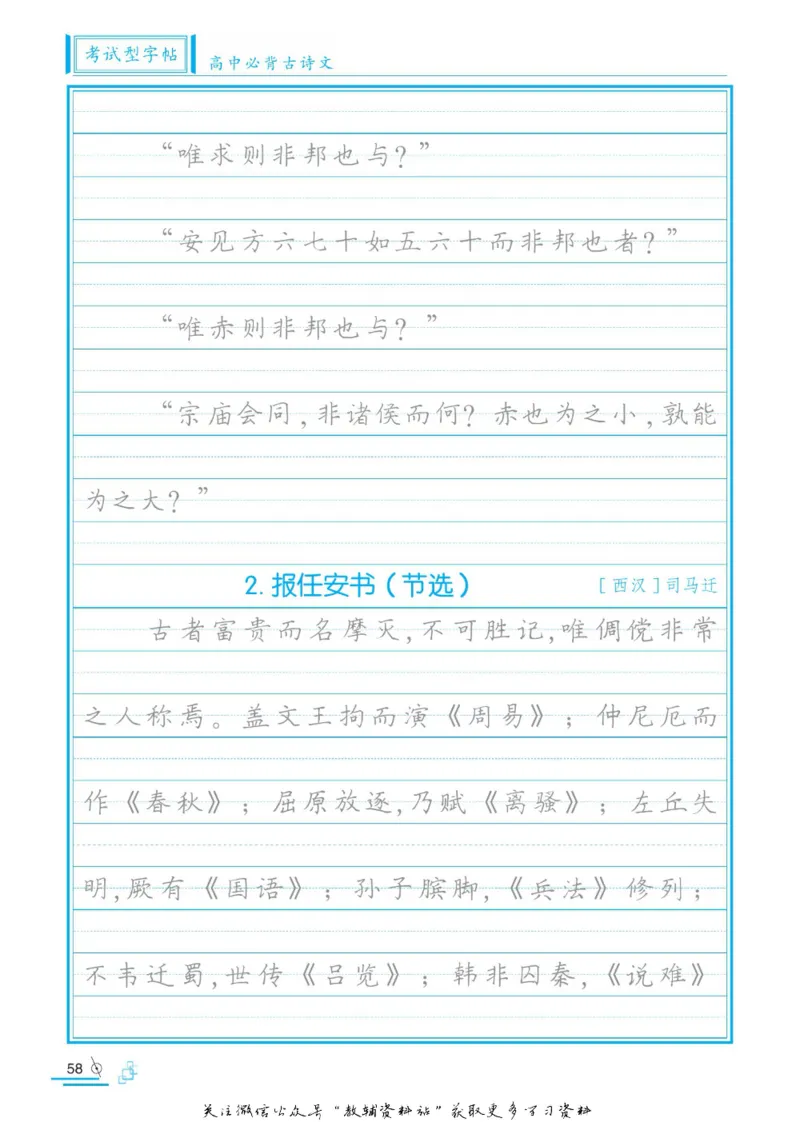 考试型字帖
高中必背古诗文
“唯求则非邦也与？”
“安见方六七十如五六十而非邦也者？”
“唯赤则非邦也与？”
“宗庙会同,非诸侯而何？赤也为之小,孰能
为之大？”
2. 报任安书（节选） [西汉]司马迁
古者富贵而名摩灭,不可胜记,唯倜傥非常
之人称焉。盖文王拘而演《周易》；仲尼厄而
作《春秋》；屈原放逐,乃赋《离骚》；左丘失
明,厥有《国语》；孙子膑脚,《兵法》修列；
不韦迁蜀,世传《吕览》；韩非囚秦,《说难》
58
关注微信公众号“教辅资料站”获取更多学习资料